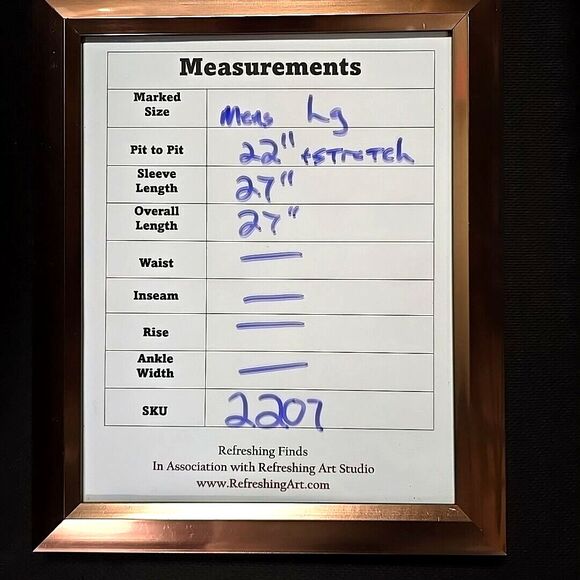 Measurements
Marked Size Mens Lg
Pit to Pit 22" +STRETCh
Sleeve Length 27"
Overall Length 27"
Waist —
Inseam —
Rise —
Ankle Width —
SKU 2207
Refreshing Finds
In Association with Refreshing Art Studio
www.RefreshingArt.com